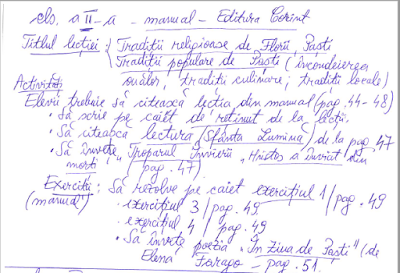 cls. a II-a - manual - Editura Corint
Titlul lecției: Tradiții religioase de Florii, Paști
Tradiții populare de Paști (încondeierea
ouălor, tradiții culinare, tradiții locale)
Activități
Elevii trebuie să citească lecția din manual (pag. 44-48)
• Să scrie pe caiet de reținut de la lecții.
• Să citească lectura "Sfânta Lumină" de la pag 47
• Să învețe "Troparul Învierii", Hristos a înviat din
morți (pag. 47).
Exerciții: Să rezolve pe caiet exercițiul 1/pag. 49
(manual) • exercițiul 3/pag. 49
• exercițiul 4/pag. 49
• Să învețe poezia "În Ziua de Paști" (de
Elena Farago - pag. 51